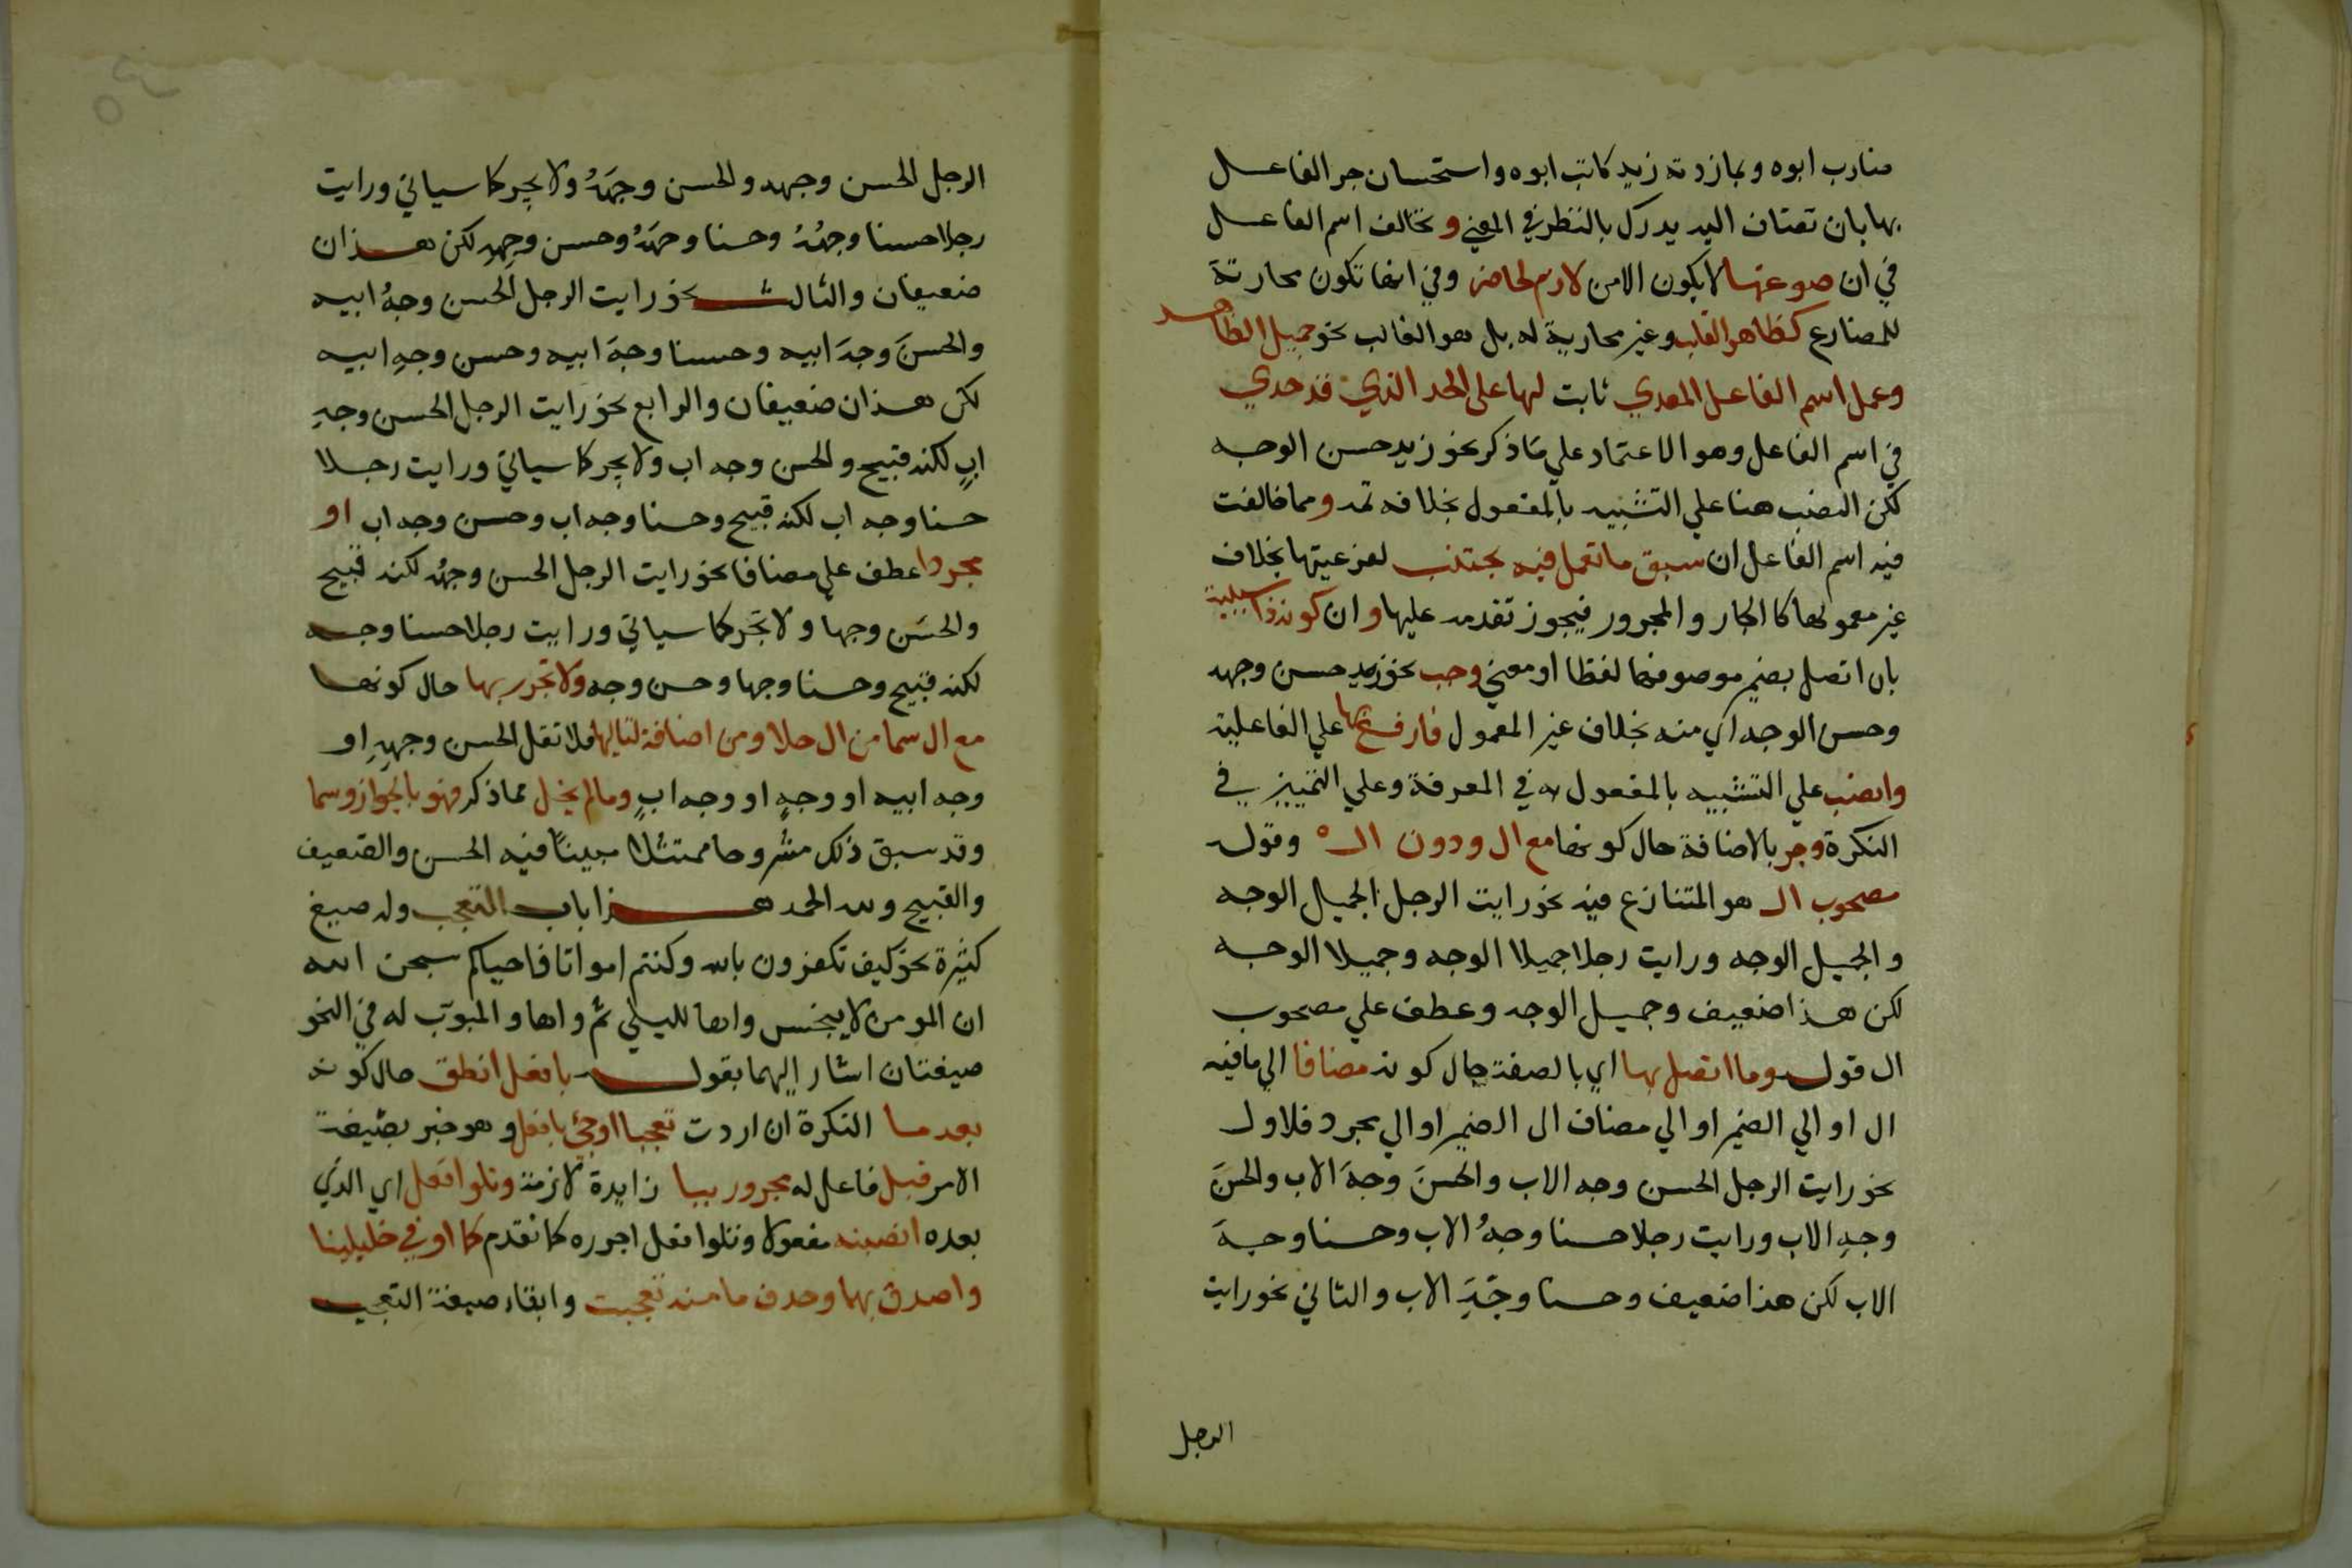 ضارب ابوه وبمازدته زيد كاتب ابوه واستحسان جر الفاعل
بها بان تضاف اليه يدرك بالنظر في المعني وتخالف اسم الفاعل
في ان صوغها لا يكون الا من لازم لحاضر وفي انها تكون مجارية
للمضارع كظاهر القلب وغير مجارية له بل هو الغالب نحو جميل الظاهر
وعمل اسم الفاعل المعدي ثابت لها علي الحد الذي قد حدي
في اسم الفاعل وهو الاعتماد علي ما ذكر نحو زيد حسن الوجه
لكن النصب هنا علي التشبيه بالمفعول بخلافه ثمه ومما خالفت
فيه اسم الفاعل ان سبق ما تعمل فيه مجتنب لفرعيتها بخلاف
غير معمولها كالجار والمجرور فيجوز تقدمه عليها وان كونه ذا سببية
بان اتصل بضمير موصوفها لفظا او معني وجب نحو زيد حسن وجهه
وحسن الوجه اي منه بخلاف غير المعمول فارفع بها علي الفاعلية
وانصب علي التشبيه بالمفعول به في المعرفة وعلي التمييز في
النكرة وجر بالاضافة حال كونها مع ال ودون ال ه وقوله
مصحوب ال هو المتنازع فيه نحو رايت الرجل الجميل الوجه
والجميل الوجه ورايت رجلا جميلا الوجه وجميلا الوجه
لكن هذا ضعيف وجميل الوجه وعطف علي مصحوب
ال قوله وما اتصل بها اي بالصفة حال كونه مضافا الي ما فيه
ال او الي الضمير او الي مضاف الي الضمير او الي مجرد فلاول
نحو رايت الرجل الحسن وجه الاب والحسنَ وجهَ الاب والحسنَ
وجهِ الاب ورايت رجلا حسنا وجهُ الاب وحسنا وجهَ
الاب لكن هذا ضعيف وحسنا وجهِ الاب والثاني نحو رايت
الرجل
الرجل الحسن وجهه والحسن وجهَهُ ولا يجر كما سياتي ورايت
رجلا حسنا وجهُهُ وحسنا وجهَهُ وحسن وجهِهِ لكن هذان
ضعيفان والثالث نحو رايت الرجل الحسن وجهُ ابيه
والحسنَ وجهَ ابيه وحسنا وجهَ ابيه وحسن وجهِ ابيه
لكن هذان ضعيفان والرابع نحو رايت الرجل الحسن وجهِ
ابٍ لكنه قبيح والحسن وجه اب ولا يجر كما سياتي ورايت رجلا
حسنا وجه اب لكنه قبيح وحسنا وجه اب وحسن وجه اب او
مجردا عطف علي مضافا نحو رايت الرجل الحسن وجهُه لكنه قبيح
والحسَن وجها ولا تَجُر كما سياتي ورايت رجلا حسنا وجه
لكنه قبيح وحسنا وجها وحسن وجه ولا تجرر بها حال كونها
مع ال سما من ال خلا ومن اضافة لتاليها فلا تقل الحسن وجهِهِ او
وجه ابيه او وجهٍ او وجه ابٍ وما لم يخل مما ذكر فهو بالجواز وسما
وقد سبق ذلك مشروحا ممثلا مبيناً فيه الحسن والضعيف
والقبيح ولله الحمد هذا باب التعجب وله صيغ
كثيرة نحو كيف تكفرون بالله وكنتم امواتا فاحياكم سبحن الله
ان المومن لا ينجس واها لليلي ثم واها واها والمبوّب له في النحو
صيغتان اشار اليهما بقوله بافعل انطق حال كونه
بعد ما النكرة ان اردت تعجبا او جئ بافعل وهو خبر بصيغة
الامر قبل فاعل له مجرور ببا زايدة لازمة وتلو افعل اي الذي
بعده انصبنه مفعولا وتلو افعل اجرره كما تقدم كما اوفي خليلينا
واصدق بهما وحذف ما منه تعجبت وابقاء صيغة التعجب